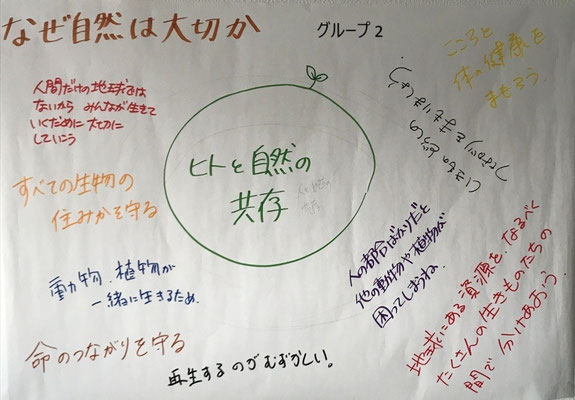 なぜ自然は大切か
グループ2
こころと
体の健康を
まもろう。
人間だけの地球では
ないから みんなが生きて
いくために大切に
していこう
すべての生物の
住みかを守る
ヒトと自然の
共存
いきもの同士の
つながりを
人の都合ばかりだと
他の動物や植物が
困ってしまうね。
動物、植物が
一緒に生きるため。
命のつながりを守る
再生するのがむずかしい。
地球にある資源を、なるべく
たくさんの生きものたちの
間で分けあおう。